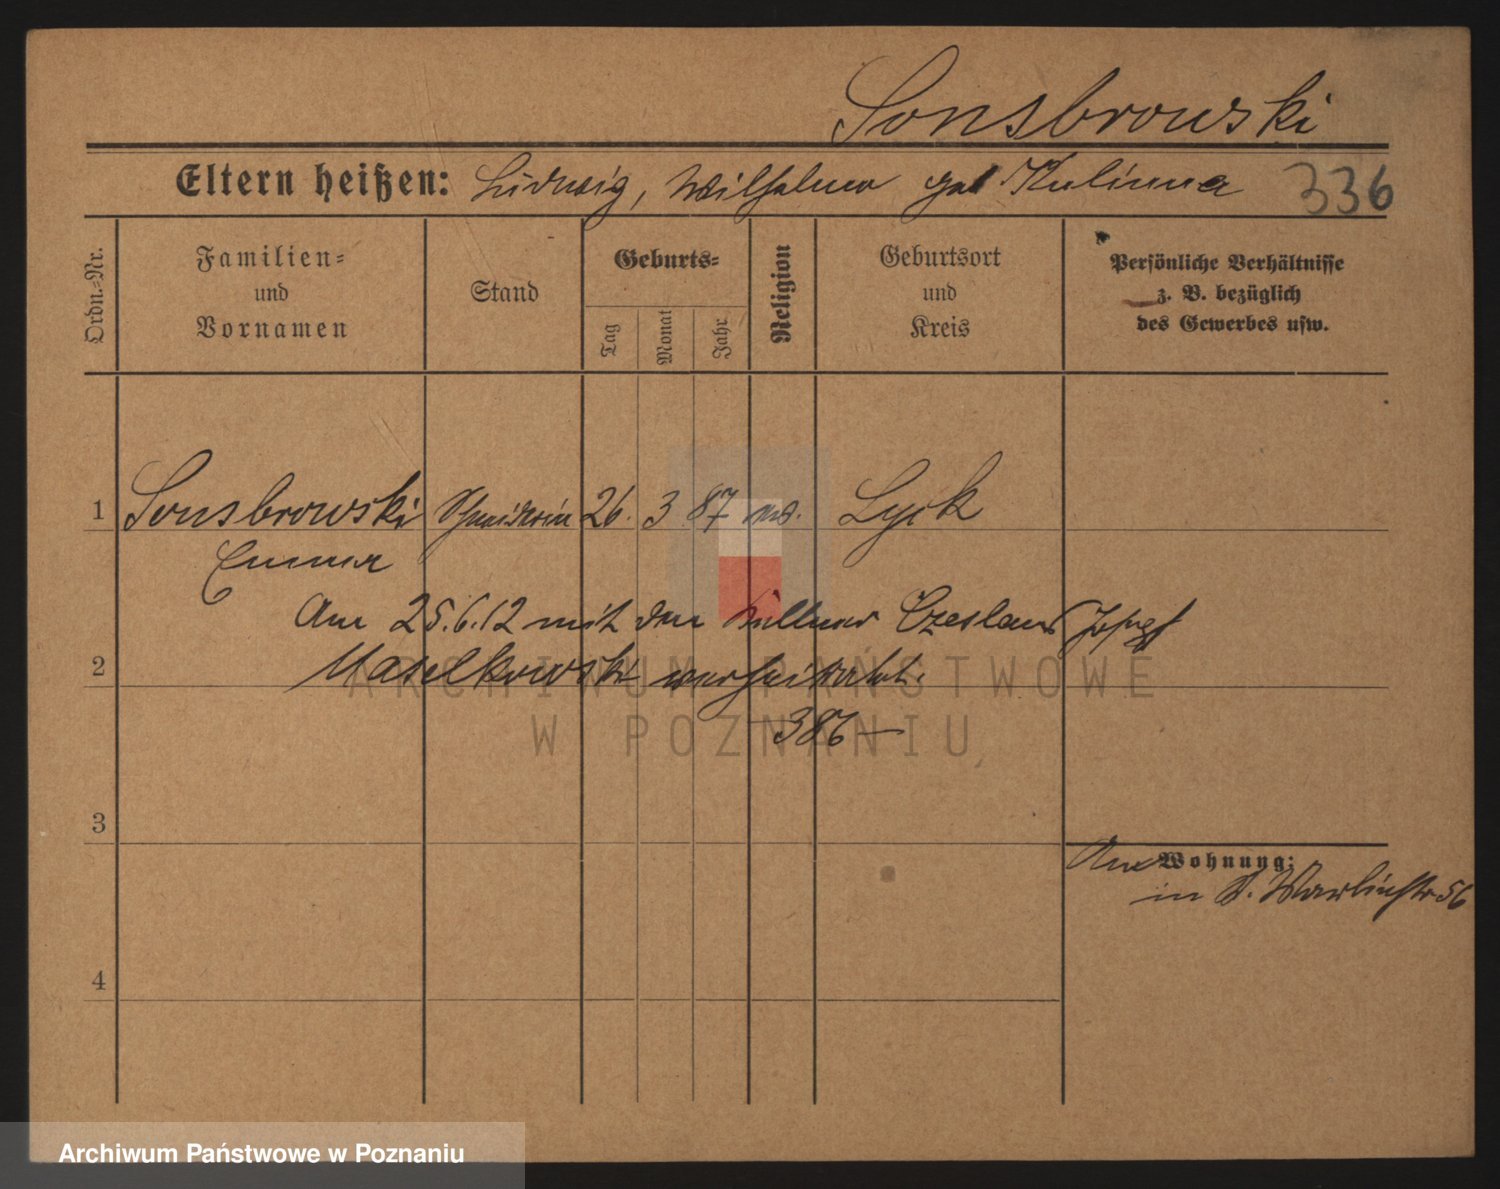 Sonsbrowski
Eltern heißen: Ludwig, Wilhelmine geb Kulinna 336
Ordn.-Nr.
Familien-
und
Vornamen
Stand
Geburts-
Tag
Monat
Jahr
Religion
Geburtsort
und
Kreis
Persönliche Verhältnisse
z. B. bezüglich
des Gewerbes usw.
1 Sonsbrowski Schneiderin 26. 3 87 Lyck
Emma
Am 25.6.12 mit dem Kellner Czeslaus Josef
2 Maselkowski verheiratet.
386
3
Wohnung:
in P. 56
4
ARCHIWUM PAŃSTWOWE
W POZNANIU
Archiwum Państwowe w Poznaniu